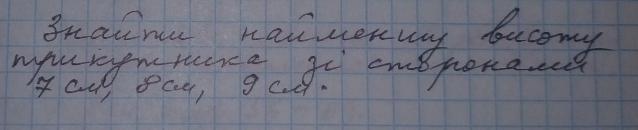 Знайти найменшу висоту
трикутника зі сторонами
7 см, 8 см, 9 см.